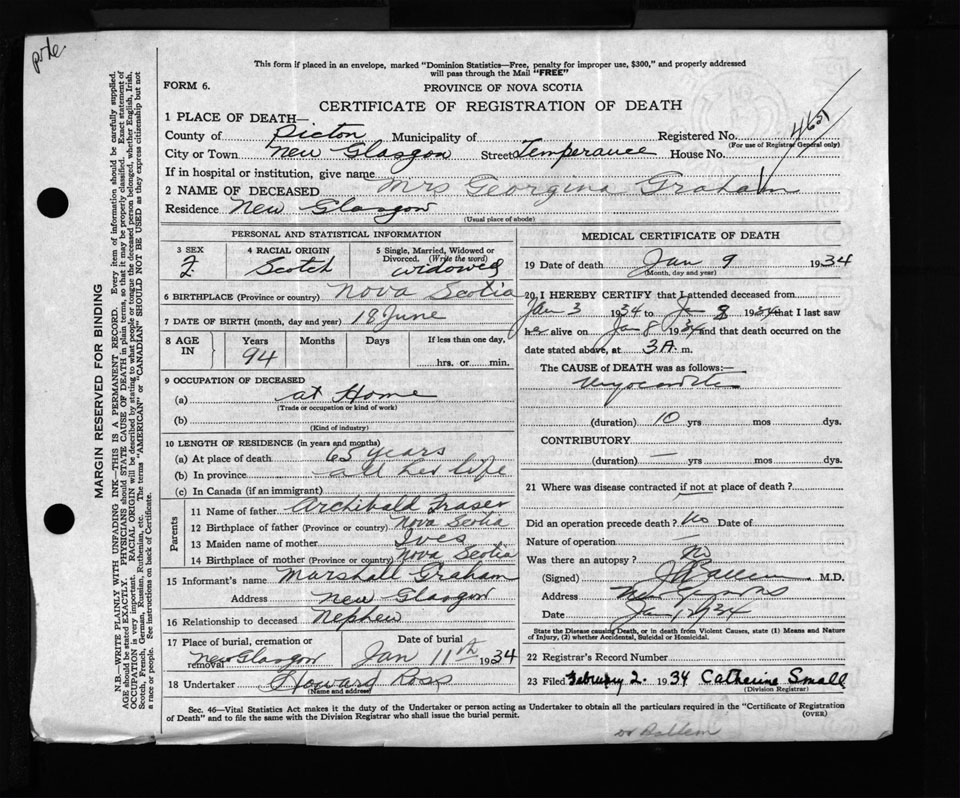 This form if placed in an envelope, marked "Dominion Statistics—Free, penalty for improper use, $300," and properly addressed
will pass through the Mail "FREE"
FORM 6.
PROVINCE OF NOVA SCOTIA
CERTIFICATE OF REGISTRATION OF DEATH
1 PLACE OF DEATH—
County of Pictou Municipality of Registered No.
(For use of Registrar General only)
City or Town New Glasgow Street Temperance House No.
If in hospital or institution, give name
2 NAME OF DECEASED Mrs Georgina Graham
Residence New Glasgow
(Usual place of abode)
MARGIN RESERVED FOR BINDING
N.B.—WRITE PLAINLY WITH UNFADING INK—THIS IS A PERMANENT RECORD. Every item of information should be carefully supplied.
AGE should be stated EXACTLY. PHYSICIANS should STATE CAUSE OF DEATH in plain terms, so that it may be properly classified. Exact statement of
OCCUPATION is very important. RACIAL ORIGIN will be described by stating to what people or tongue the deceased person belonged, whether English, Irish,
Scotch, French, German, Russian, Ruthenian, etc. The terms "AMERICAN" or "CANADIAN" SHOULD NOT BE USED as they express citizenship but not
a race or people. See instructions on back of Certificate.
PERSONAL AND STATISTICAL INFORMATION
3 SEX
F.
4 RACIAL ORIGIN
Scotch
5 Single, Married, Widowed or
Divorced. (Write the word)
widowed
6 BIRTHPLACE (Province or country) Nova Scotia
7 DATE OF BIRTH (month, day and year) 18 June
8 AGE
IN
Years
94
Months
Days
If less than one day,
hrs. or min.
9 OCCUPATION OF DECEASED
(a) at Home
(Trade or occupation or kind of work)
(b)
(Kind of industry)
10 LENGTH OF RESIDENCE (in years and months)
(a) At place of death 65 years
(b) In province all her life
(c) In Canada (if an immigrant)
Parents
11 Name of father Archibald Fraser
12 Birthplace of father (Province or country) Nova Scotia
13 Maiden name of mother Ives
14 Birthplace of mother (Province or country) Nova Scotia
15 Informant's name Marshall Graham
Address New Glasgow
16 Relationship to deceased Nephew
17 Place of burial, cremation or
removal New Glasgow
Date of burial
Jan 11th 1934
18 Undertaker Howard Ross
(Name and address)
MEDICAL CERTIFICATE OF DEATH
19 Date of death Jan 9 1934
(Month, day and year)
20 I HEREBY CERTIFY that I attended deceased from
Jan 3 1934 to Jan 8 1934 that I last saw
her alive on Jan 8 1934 and that death occurred on
date stated above, at 3 A. m.
The CAUSE OF DEATH was as follows:—
Myocarditis
(duration) 10 yrs mos dys.
CONTRIBUTORY
(duration) — yrs mos dys.
21 Where was disease contracted if not at place of death?
Did an operation precede death? No Date of
Nature of operation —
Was there an autopsy? No
(Signed) M.D.
Address New Glasgow
Date Jan 1934
State the Disease causing Death, or in death from Violent Causes, state (1) Means and Nature
of Injury, (2) whether Accidental, Suicidal or Homicidal.
22 Registrar's Record Number
23 Filed February 2. 1934 Catherine Small
(Division Registrar)
Sec. 46—Vital Statistics Act makes it the duty of the Undertaker or person acting as Undertaker to obtain all the particulars required in the "Certificate of Registration
of Death" and to file the same with the Division Registrar who shall issue the burial permit.
(OVER)